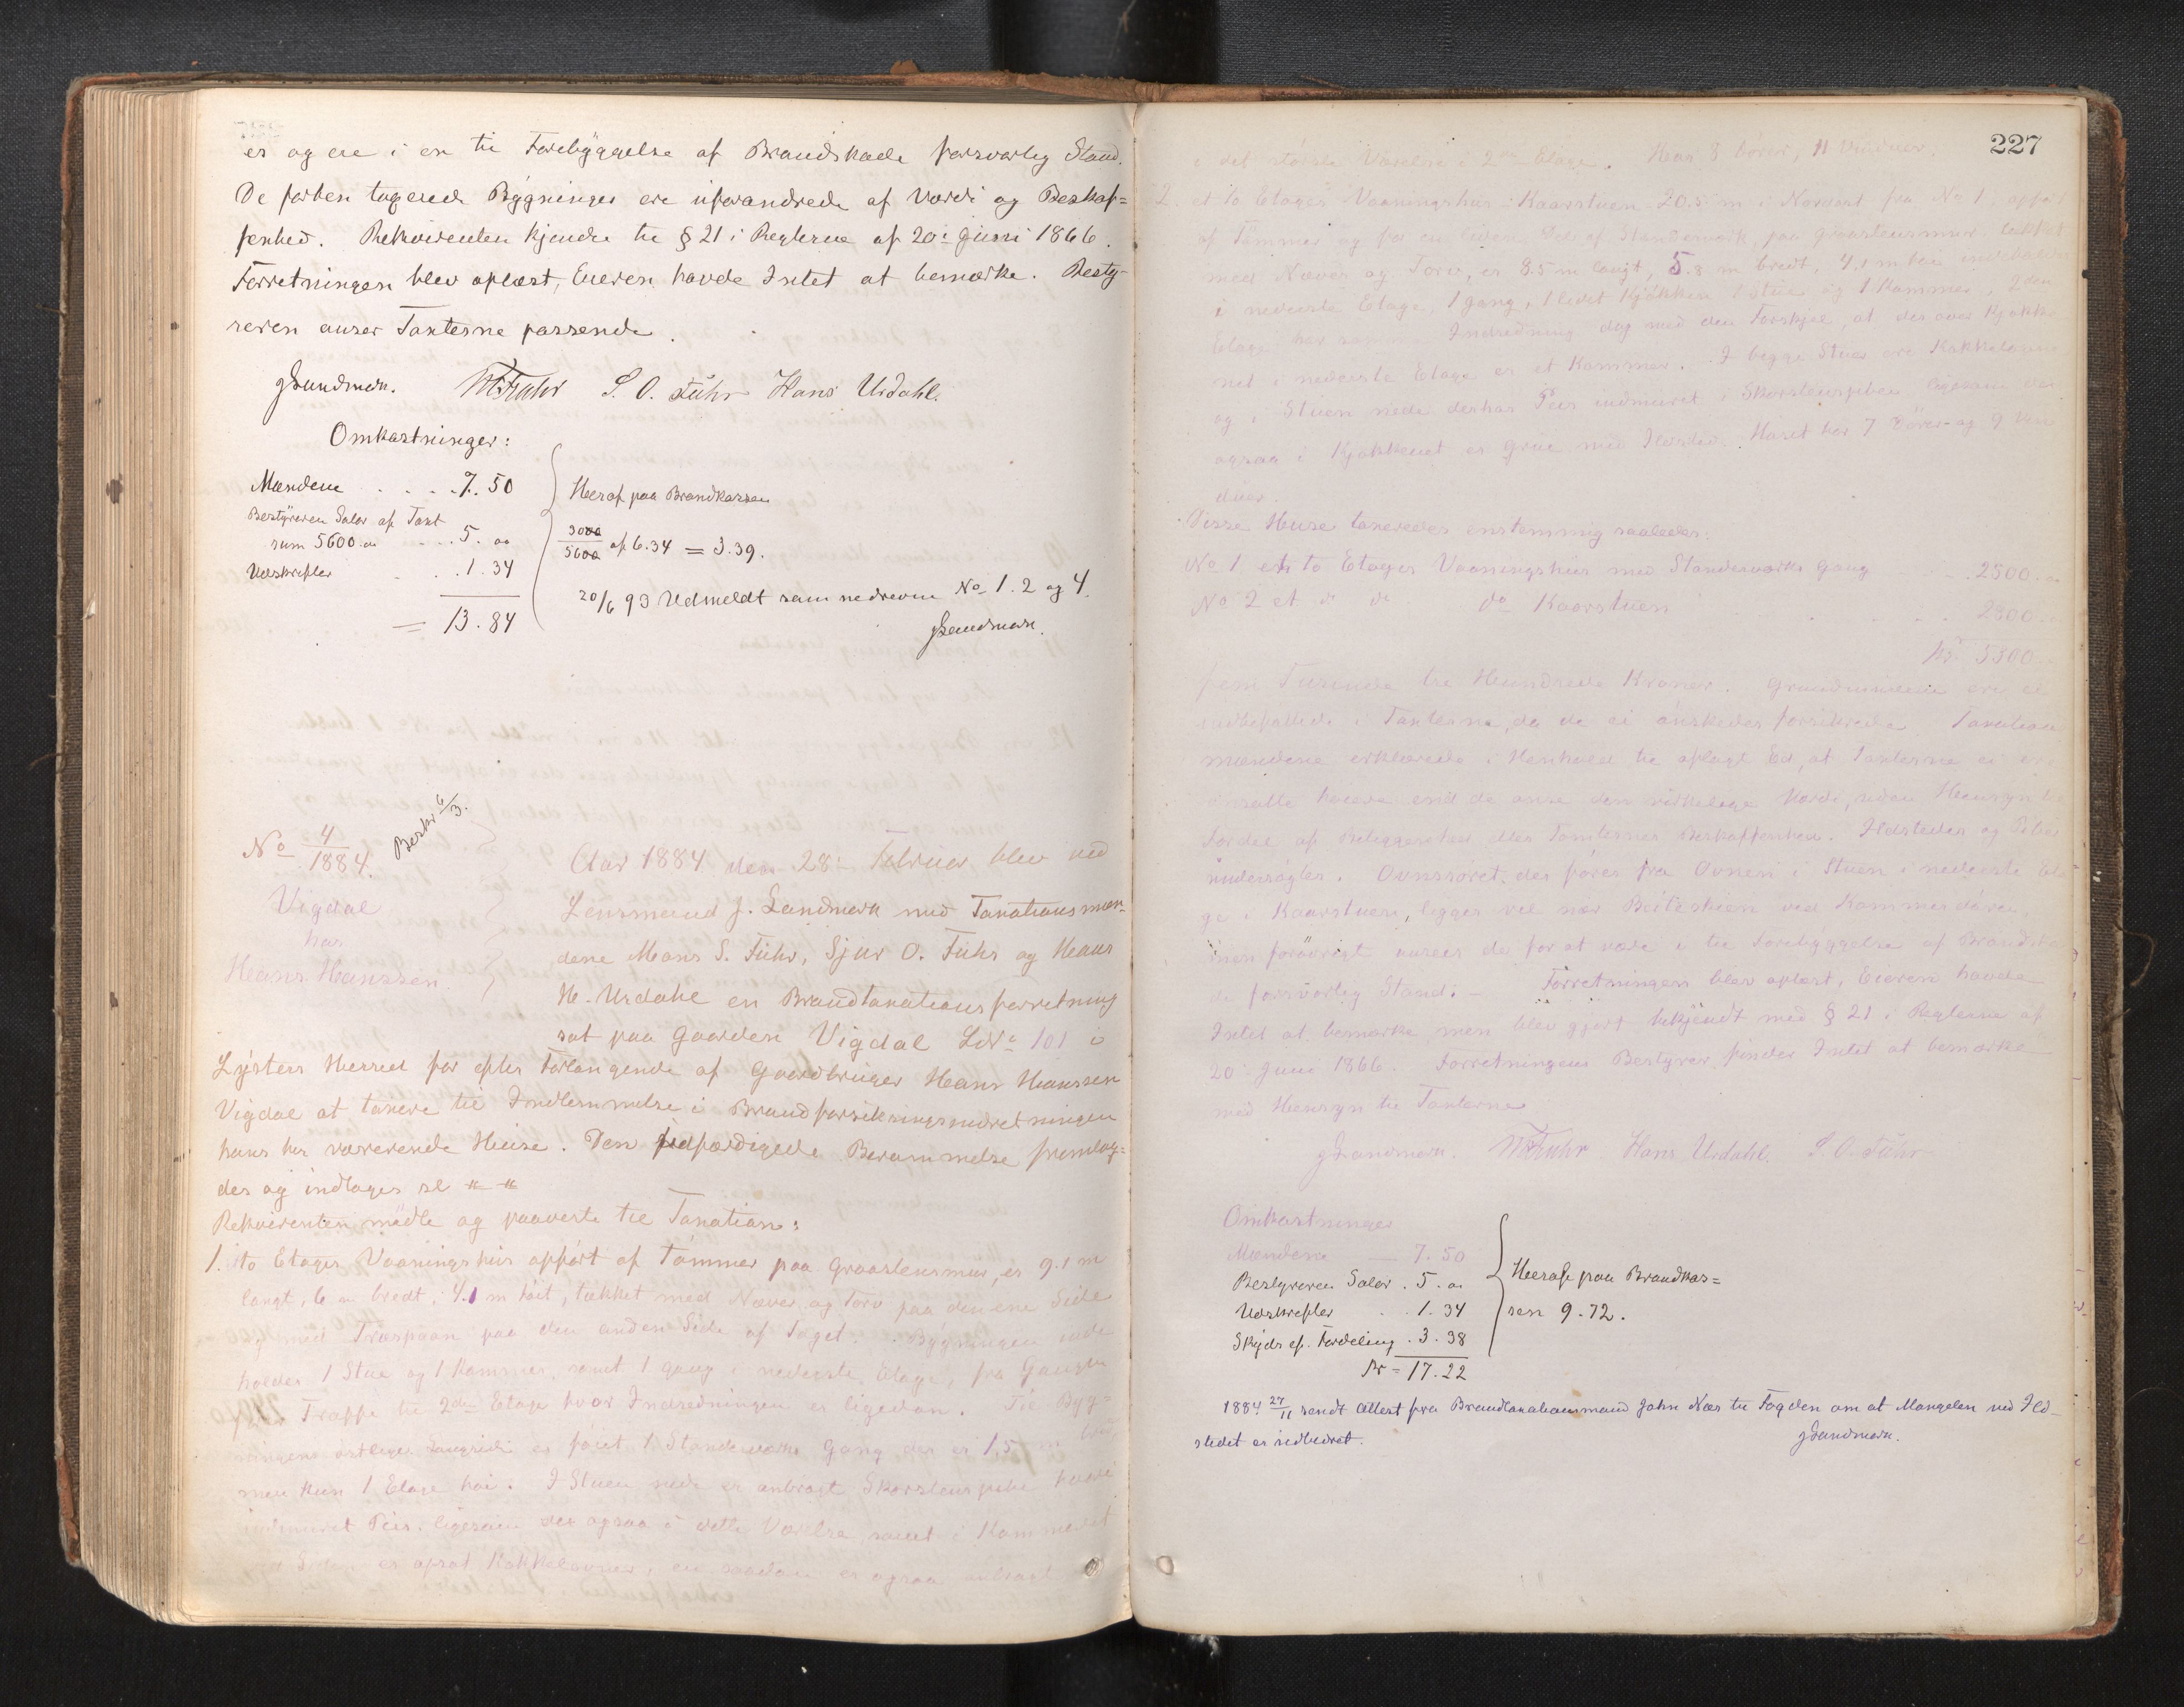 er og ere i en til Forebyggelse af Brandskade forsvarlig Stand.
De forhen taxerede Bygninger ere uforandrede af Værdi og Beskaf=
fenhed. Rekvirenten kjendte til § 21 i Reglerne af 20: Juni 1866.
Forretningen blev oplæst, Eieren havde Intet at bemærke. Besty-
reren anser Taxterne passende.
JLandmark. S. O. Fuhr Hans Urdahl.
Omkostninger:
Mændene . . . . 7. 50
Bestyreren Salær af Taxt
sum 5600.00 . . . 5. 00
Udskrifter . . 1. 34
= 13. 84
Heraf paa Brandkassen
3000/5600 af 6.34 = 3.39.
20/6 93 Udmeldt som nedrevne No 1. 2 og 4.
JLandmark.
No 4/1884.
Beskr 6/3.
Vigdal
hos
Hans Hanssen.
Aar 1884 den 28: Februar blev ved
Lensmand J. Landmark med Taxationsmæn-
dene Mons S. Fuhr, Sjur O. Fuhr og Hans
H. Urdahl en Brandtaxationsforretning
sat paa Gaarden Vigdal LNo 101 i
Lysters Herred for efter Forlangende af Gaardbruger Hans Hanssen
Vigdal at taxere til Indlemmelse i Brandforsikringsindretningen
hans her værerende Huse. Den udfærdigede Berammelse fremlag=
des og indtages sl " "
Rekvirenten mödte og paaviste til Taxation:
1. to Etages Vaaningshus opført af Tömmer paa Graastensmur, er 9.1 m
langt, 6 m bredt, 4.1 m höit, tækket med Næver og Torv paa den ene Side
og med Træspaan paa den anden Side af Taget. Bygningen inde
holder 1 Stue og 1 Kammer, samt 1 Gang i nederste Etage, fra Gangen
Trappe til 2den Etage hvor Indredningen er ligedan. Til Byg=
ningens östlige Langside er föiet 1 Standerværks Gang der er 1,5 m bred,
men kun 1 Etage höi. I Stuen nede er anbragt Skorstenspibe hvori
indmuret Peis, ligesom der ogsaa i dette Værelse samt i Kammeret
ved Siden er opsat Kakkelovner, en saadan er ogsaa anbragt
227
i det största Værelse i 2den Etage. Har 8 Dörer, 11 Vinduer.
2. et to Etages Vaaningshus - Kaarstuen 20.5 m i Nordost fra No 1, opfört
af Tömmer og for en liden Del af Standerværk, paa Graastensmur, tækket
med Næver og Torv, er 8.5 m langt, 5.8 m bredt, 4.1 m höi indeholder
i nederste Etage, 1 Gang, 1 lidet Kjökken 1 Stue og 1 Kammer, 2den
Etage har samme Indredning dog med den Forskjel, at der over Kjökke
net i nederste Etage er et Kammer. I begge Stuer ere Kakkelovne
og i Stuen nede derhos Peis indmuret i Skorstenspiben ligesom der
ogsaa i Kjökkenet er Grue med Ildsted. Huset har 7 Dörer og 9 Vin
duer.
Disse Huse taxeredes enstemmig saaledes:
No 1 et to Etages Vaaningshus med Standerværks Gang . . 2500.00
No 2 et do do do Kaarstuen . . . . 2800.
Kr. 5300.
fem Tusende tre Hundrede Kroner. Grundmurene ere ei
indbefattede i Taxterne, da de ei önskedes forsikrede. Taxations
mændene erklærede i Henhold til aflagt Ed, at Taxterne ei er
ansatte höiere end de anse den virkelige Værdi, uden Hensyn til
Fordel af Beliggenhed eller Tomternes Beskaffenhed. Ildsteder og Piber
undersögtes. Ovnsröret, der förer fra Ovnen i Stuen i nederste Eta
ge i Kaarstuen, ligger vel nær Beiteskien ved Kammersdören,
men forövrigt ansees de for at være i til Forebyggelse af Brandska
de forsvarlig Stand. - Forretningen blev oplæst, Eieren havde
Intet at bemærke men blev gjort bekjendt med § 21 i Reglerne af
20: Juni 1866. Forretningens Bestyrer finder Intet at bemærke
med Hensyn til Taxterne
JLandmark. Hans Urdahl. S. O. Fuhr
Omkostninger
Mændene - 7. 50
Bestyreren Salær . 5. 00
Udskrifter . . 1. 34
Skyds ef. Fordeling . 3. 38
Kr = 17. 22
Heraf paa Brandkas=
sen 9. 72.
1884 27/11 sendt Attest fra Brandtaxationsmand John Næs til Fogden om at Mangelen ved Ild-
stedet er udbedret. JLandmark.